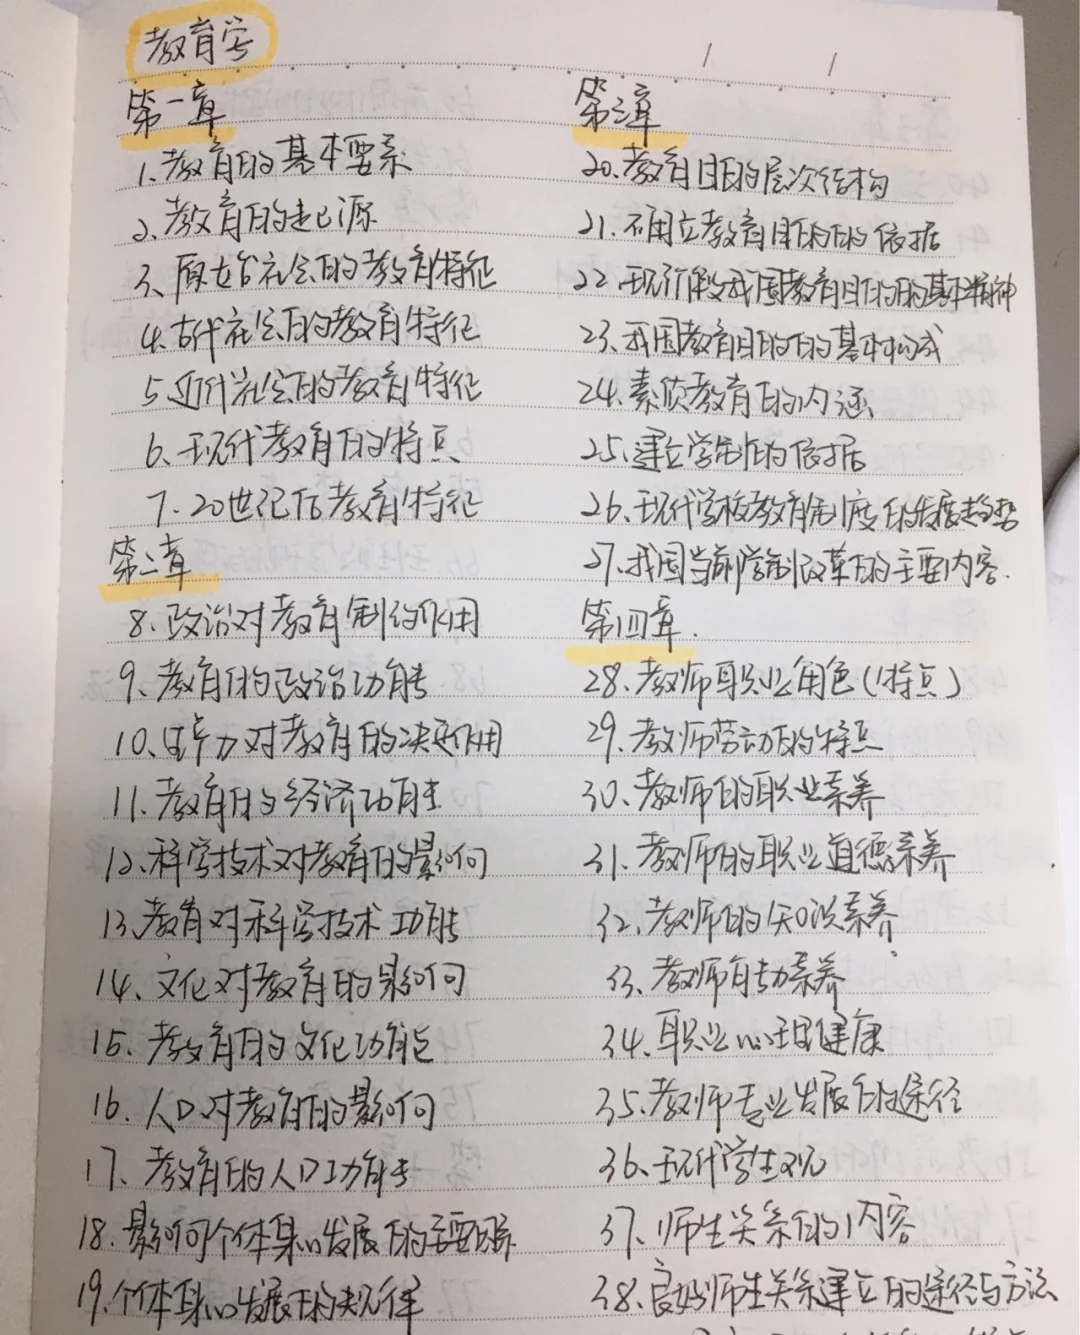 教育学
第一章
1、教育的基本要素
2、教育的起源
3、原始社会的教育特征
4、古代社会的教育特征
5、近代社会的教育特征
6、现代教育的特点
7、20世纪后教育特征
第二章
8、政治对教育制约作用
9、教育的政治功能
10、生产力对教育的决定作用
11、教育的经济功能
12、科学技术对教育的影响
13、教育对科学技术功能
14、文化对教育的影响
15、教育的文化功能
16、人口对教育的影响
17、教育的人口功能
18、影响个体身心发展的主要因素
19、个体身心发展的规律
第三章
20、教育目的的层次结构
21、确立教育目的的依据
22、现阶段我国教育目的的基本精神
23、我国教育目的的基本构成
24、素质教育的内涵
25、建立学制的依据
26、现代学校教育制度的发展趋势
27、我国当前学制改革的主要内容.
第四章.
28、教师职业角色(特点)
29、教师劳动的特点
30、教师的职业素养
31、教师的职业道德素养
32、教师的知识素养
33、教师能力素养
34、职业心理健康
35、教师专业发展的途径
36、现代学生观
37、师生关系的内容
38、良好师生关系建立的途径与方法